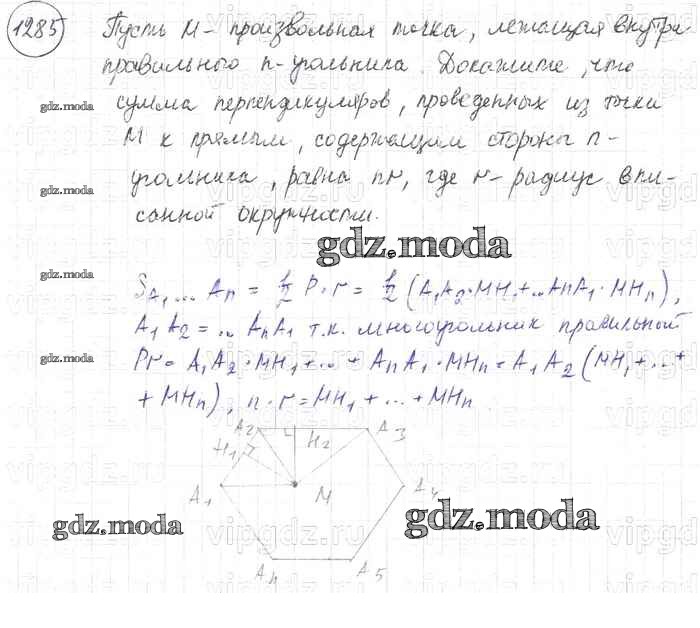 1285 Пусть М - произвольная точка, лежащая внутри
правильного n-угольника. Докажите, что
gdz.moda сумма перпендикуляров, проведенных из точки
М к прямым, содержащим стороны n-
gdz.moda угольника, равна nr, где r - радиус впи-
санной окружности.
gdz.moda
gdz.moda S A₁ ... Aₙ = 1/2 P·r = 1/2 (A₁A₂·MH₁+...AₙA₁·MHₙ),
A₁A₂=...AₙA₁ т.к. многоугольник правильной
gdz.moda Pr = A₁A₂·MH₁+...+AₙA₁·MHₙ = A₁A₂(MH₁+...+
+MHₙ), n·r=MH₁+...+MHₙ
A₂ H₂ A₃
H₁
A₁ M A₄
gdz.moda gdz.moda
Aₙ A₅
vipgdz.ru